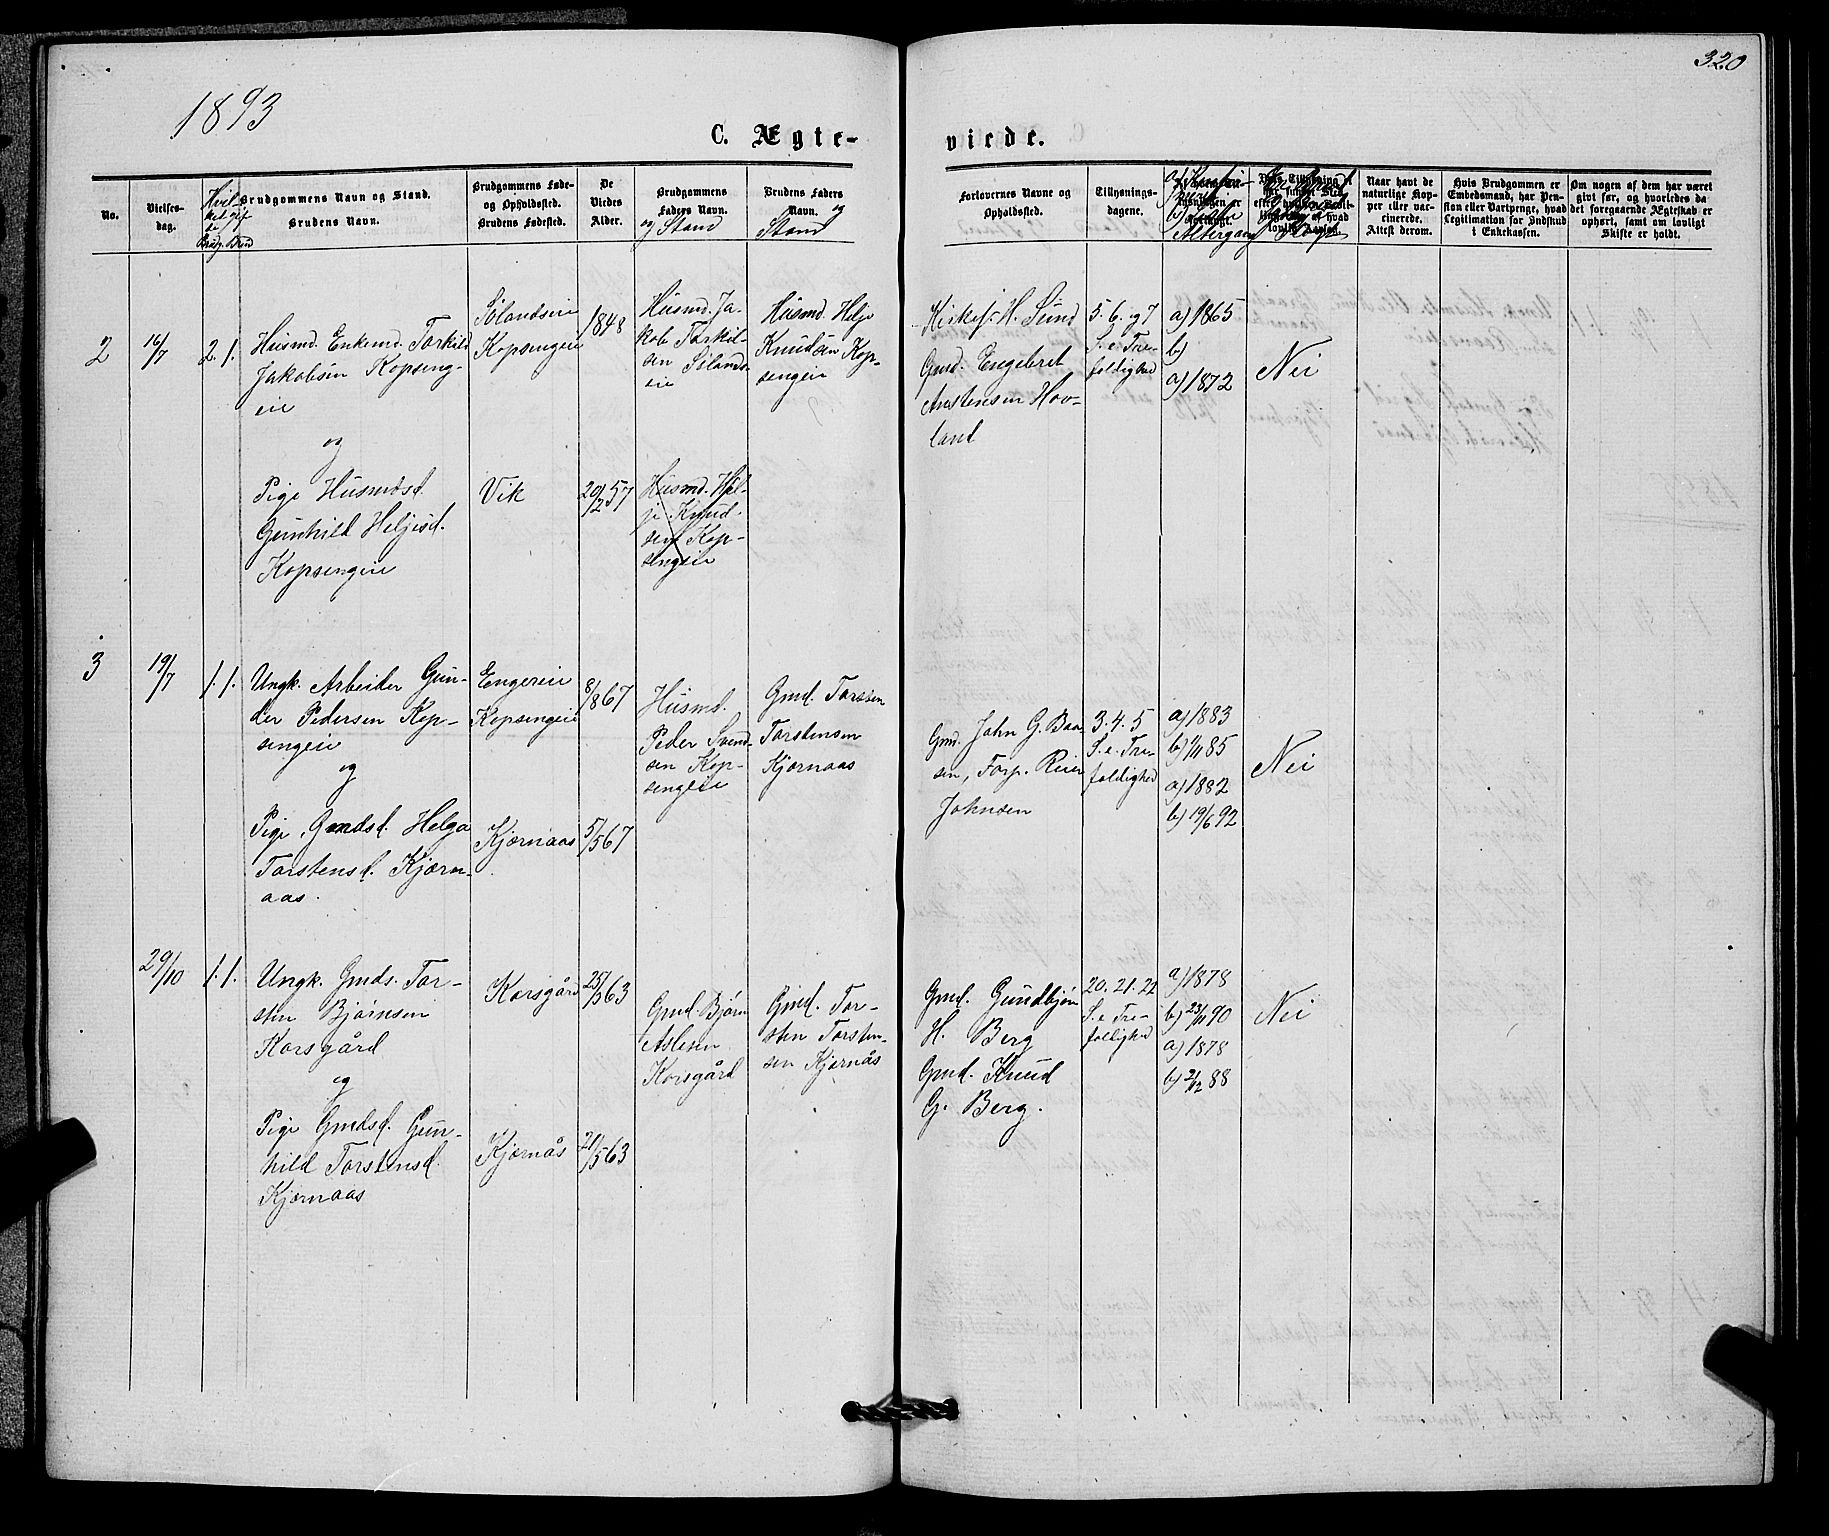 320
1893
C. Ægte-
viede.
No.
Vielses-
dag.
Hvil-
ket gif
te
Brudg Brud
Brudgommens Navn og Stand.
Brudens Navn.
Brudgommens Føde-
og Opholdssted.
Brudens Fødested.
De
Viedes
Alder.
Brudgommens
Faders Navn.
og Stand
Brudens Faders
Navn. og
Stand
Forlovernes Navne og
Opholdssted.
Tillysnings-
dagene.
Naar havt de
naturlige Kop-
per eller vac-
cinerede.
Attest derom.
Hvis Brudgommen er
Embedsmand, har Pen-
sion eller Vartpenge, hvad
Legitimation for Indskud
i Enkekassen.
Om nogen af dem har været
gift før, og hvorledes da
det foregaaende Ægteskab er
ophørt, samt om lovligt
Skifte er holdt.
2
16/7
2. 1.
Husmd. Enkemd. Torkild
Jakobsen Kopseng-
eie
og
Pige Husmdsd.
Gunhild Heljesd.
Kopsengeie
Sølandseie
Kopsengeie
Vik
1848
20/2 57
Husmd. Ja-
kob Torkil-
sen Sølands-
eie
Husmd. Hel-
je Knud-
sen Kop-
sengeie
Husmd. Helje
Knudsen Kop-
sengeie
Kirkes. H. Lund
Gmd. Engebret
Anstensen Hov-
land
5. 6. og 7
S. e. Tre-
foldighed
a) 1865
b)
a) 1872
Nei
3
19/7
1. 1.
Ungk. Arbeider Gun-
der Pedersen Kop-
sengeie
og
Pige Gmdsd. Helga
Torstensd. Kjærn-
aas.
Engereie
Kopsengeie
Kjærnaas
8/8 67
5/5 67
Husmd.
Peder Svend-
sen Kop-
sengeie
Gmd. Torsten
Torstensen
Kjærnaas
Gmd. John G. Baa-
sen, Forp. Reier
Johnsen
3. 4. 5
S. e. Tre-
foldighed
a) 1883
b) 1/11 85
a) 1882
b) 19/6 92
Nei
29/10
1. 1.
Ungk. Gmds. Tor-
sten Bjørnsen
Korsgård
og
Pige Gmdsd. Gun-
hild Torstensd.
Kjærnaas
Korsgård
Kjærnås
25/3 63
21/5 63
Gmd. Bjørn
Aslesen
Korsgård
Gmd. Tor-
sten Torsten-
sen Kjærnås
Gmd. Gundbjørn
H. Berg
Gmd. Knud
G. Berg.
20. 21. 22
S. e. Tre-
foldighed
a) 1878
b) 23/11 90
a) 1878
b) 2/12 88
Nei